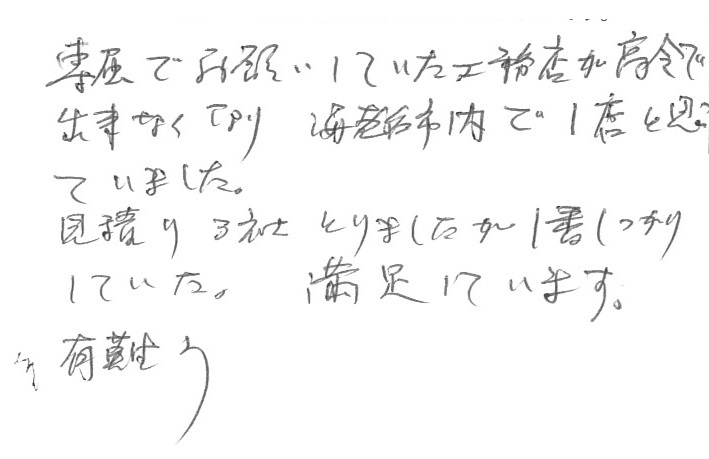 専属でお願いしていた工務店が高令で
出来なくなり 海老名市内で1店と思っ
ていました。
見積り3社とりましたが1番しっかり
していた。 満足しています。
有難う